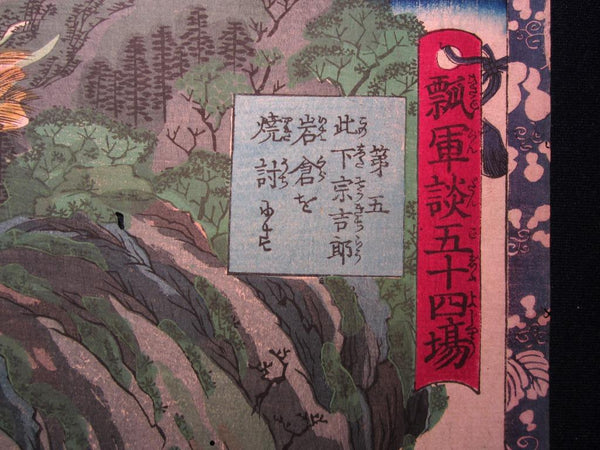 瓢軍談五十四場
第五
此下宗吉郎
岩倉を
焼討にす